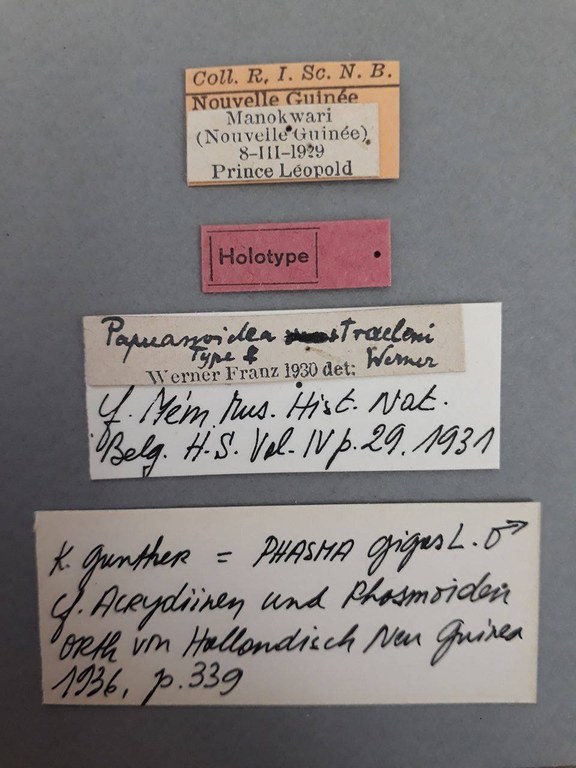 Coll. R. I. Sc. N. B.
Nouvelle Guinée
Manokwari
(Nouvelle Guinée)
8-III-1929
Prince Léopold
Holotype
Papuanoidea straeleni
Type Werner
Werner Franz 1930 det:
cf. Mém. Mus. Hist. Nat.
Belg. H.S. Vol. IV p. 29. 1931
K. Gunther = PHASMA gigas L. ♂
cf. Acrydiinen und Phasmoiden
Orth von Hollandisch Neu Guinea
1936, p. 339